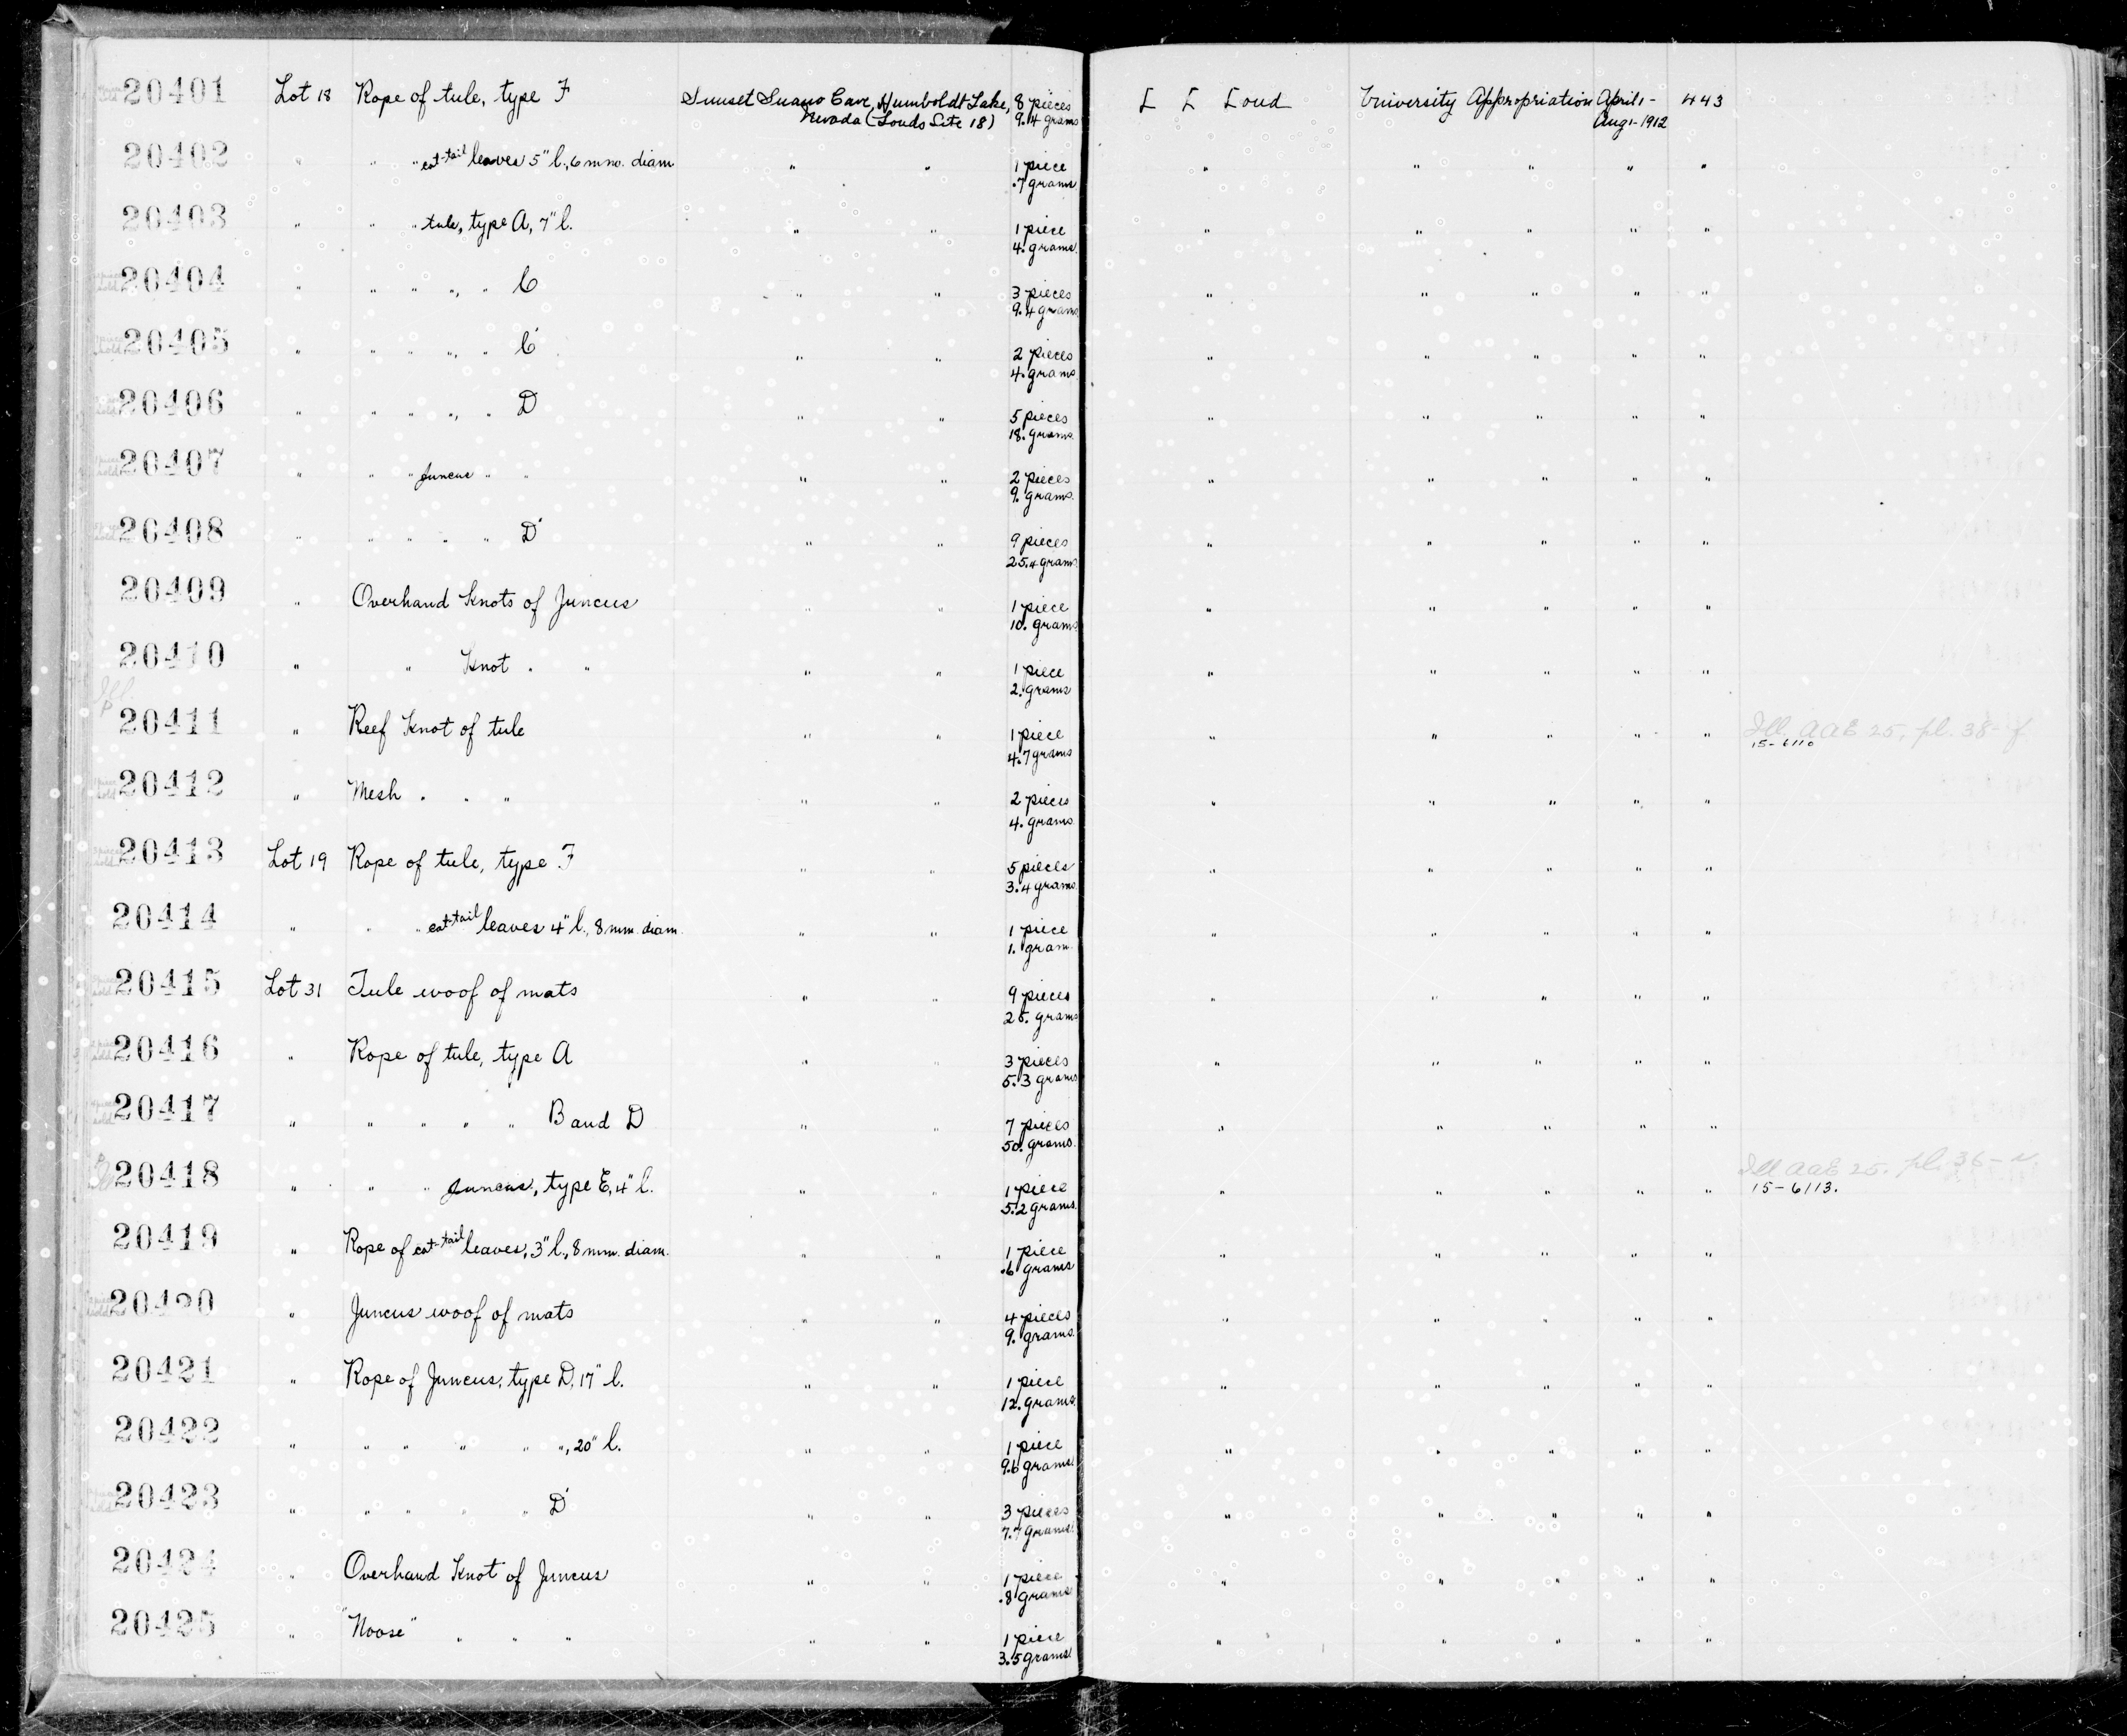 20401 Lot 18 Rope of tule, type F Sunset Guano Cave, Humboldt Lake, 8 pieces L L Loud University Appropriation April 1- 443
Nevada (Louds Site 18) 9.4 grams Aug 1-1912
20402 " " " cat-tail leaves 5" l., 6 mm. diam " " 1 piece " " " " "
.7 grams
20403 " " " tule, type A, 7" l. " " 1 piece " " " " "
4. grams
20404 " " " ", " C " " 3 pieces " " " " "
9.4 grams
20405 " " " ", " C' " " 2 pieces " " " " "
4. grams
20406 " " " ", " D " " 5 pieces " " " " "
18. grams
20407 " " " Juncus " " " " 2 pieces " " " " "
9. grams
20408 " " " " " D' " " 9 pieces " " " " "
25.4 grams
20409 " Overhand Knots of Juncus " " 1 piece " " " " "
10. grams
20410 " " Knot " " " " 1 piece " " " " "
2. grams
Ill.
20411 " Reef Knot of tule " " 1 piece " " " " " Ill. AAE 25, pl. 38-f
4.7 grams 15-6110
20412 " Mesh " " " " " 2 pieces " " " " "
4. grams
20413 Lot 19 Rope of tule, type F " " 5 pieces " " " " "
3.4 grams
20414 " " " cat-tail leaves 4" l., 8 mm. diam. " " 1 piece " " " " "
1. gram
20415 Lot 31 Tule woof of mats " " 9 pieces " " " " "
grams
20416 " Rope of tule, type A " " 3 pieces " " " " "
5.3 grams
20417 " " " " " B and D " " 7 pieces " " " " "
50. grams
20418 " " " Juncus, type E, 4" l. " " 1 piece " " " " " Ill AAE 25. pl. 36-
5.2 grams 15-6113.
20419 " Rope of cat-tail leaves, 3" l., 8 mm. diam. " " 1 piece " " " " "
.6 grams
20420 " Juncus woof of mats " " 4 pieces " " " " "
9. grams
20421 " Rope of Juncus, type D, 17" l. " " 1 piece " " " " "
12. grams
20422 " " " " " ", 20" l. " " 1 piece " " " " "
9.6 grams
20423 " " " " " D' " " 3 pieces " " " " "
7.7 grams
20424 " Overhand Knot of Juncus " " 1 piece " " " " "
.8 grams
20425 " "Noose" " " " " " 1 piece " " " " "
3.5 grams